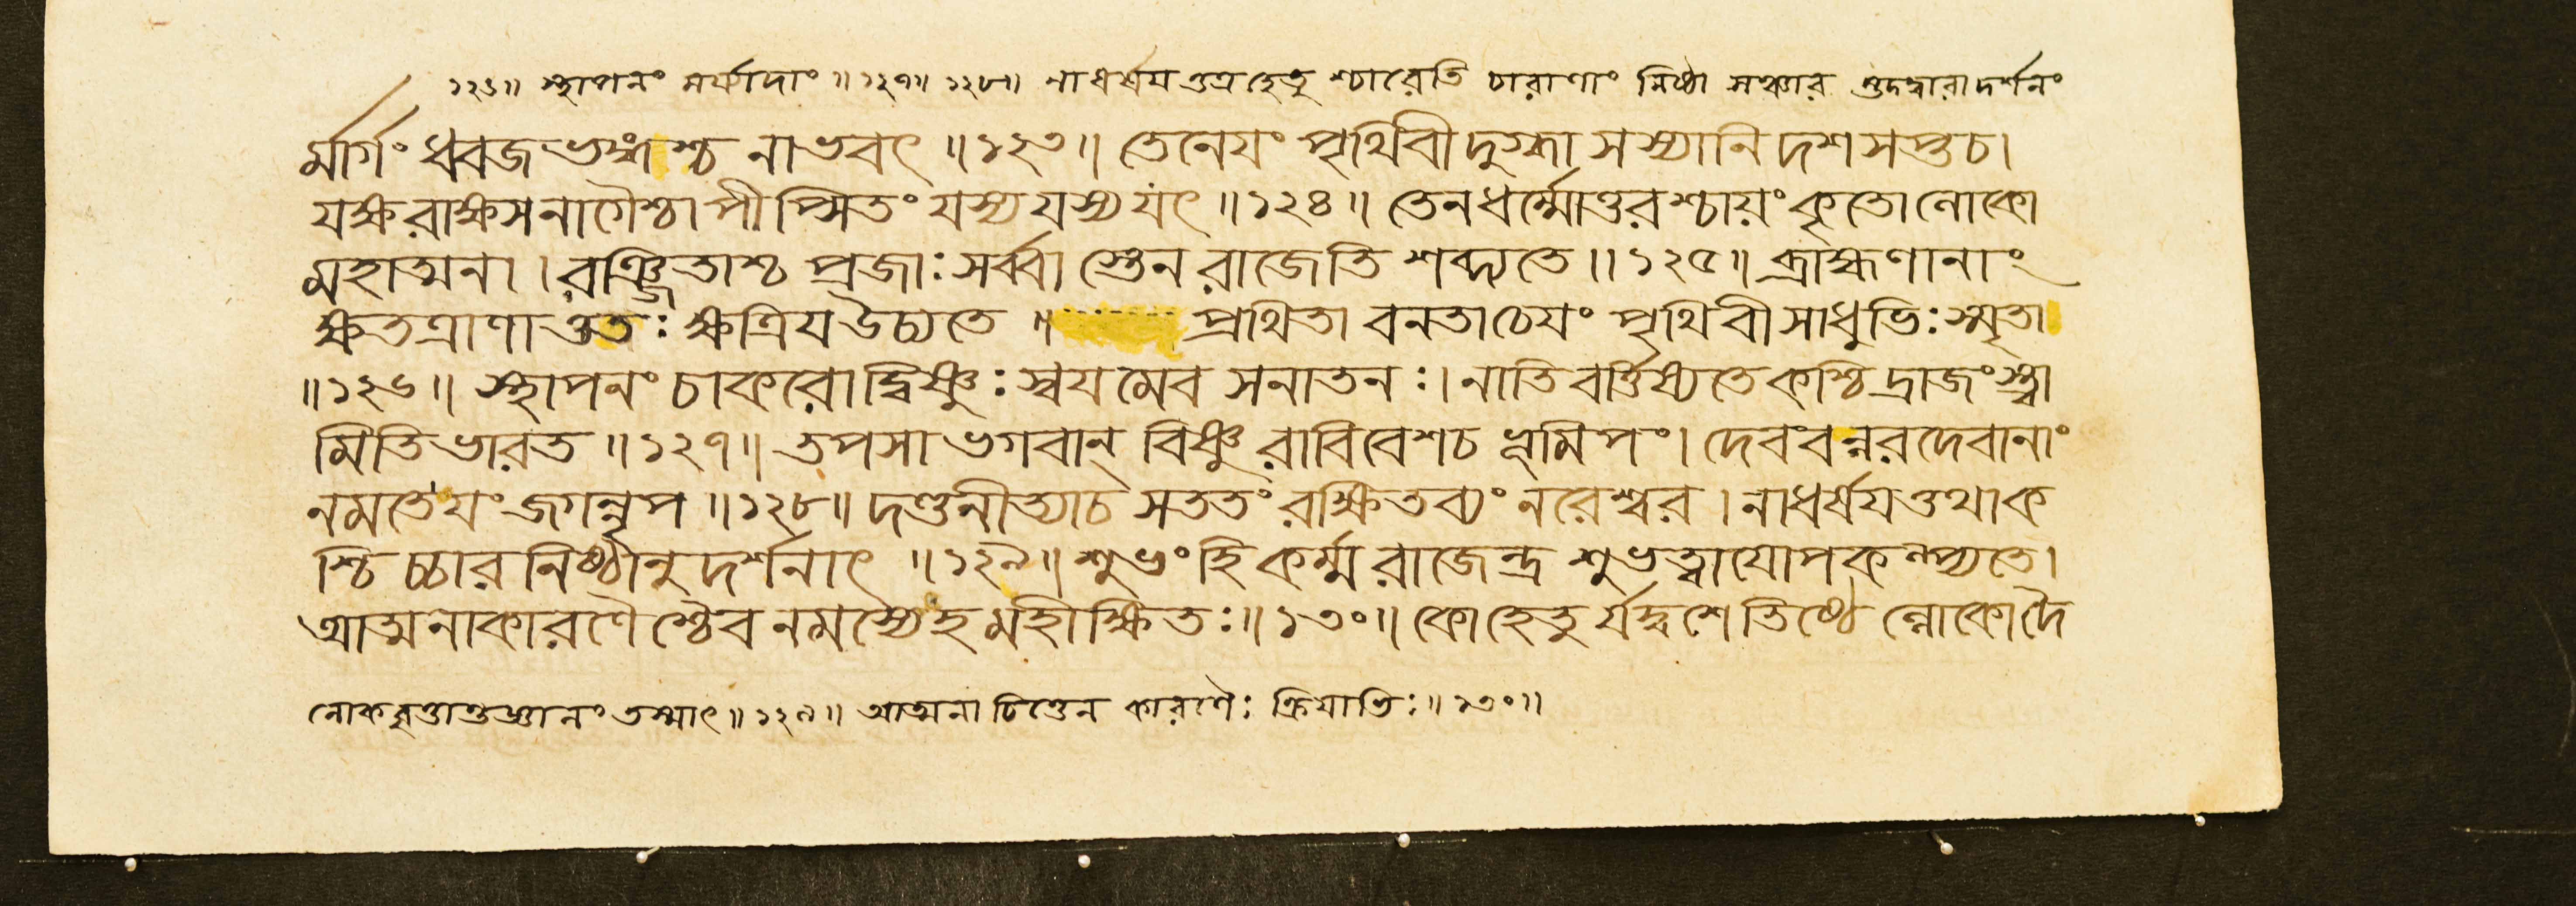 ১২৬॥ স্থাপনং মর্যাদাং ॥১২৭॥ ১২৮॥ নাধর্ষয়ত্তত্রহেতু শ্চারেতি চারাণাং নিষ্ঠা সঞ্চার স্তদদ্বারা দর্শনং
র্মার্গং ধ্বজভঙ্গশ্চ নাভবৎ ॥১২৩॥ তেনেয়ং পৃথিবী দুগ্ধা সস্যানি দশ সপ্ত চ।
যক্ষ রাক্ষস নাগৈশ্চাপীপ্সিতং যস্য যস্য যৎ ॥১২৪॥ তেন ধর্ম্মোত্তরশ্চায়ং কৃতো লোকো
মহাত্মনা । রঞ্জিতাশ্চ প্রজাঃ সর্ব্বা স্তেন রাজেতি শব্দ্যতে ॥১২৫॥ ব্রাহ্মণানাং
ক্ষতত্রাণাত্ততঃ ক্ষত্রিয় উচ্যতে ॥ প্রথিতা ধনতাচেয়ং পৃথিবী সাধুভিঃ স্মৃতা
॥১২৬॥ স্থাপনং চাকরোদ্বিষ্ণুঃ স্বয়মেব সনাতনঃ। নাতিবর্ত্তিষ্যতে কশ্চিদ্রাজংস্ত্বা
মিতি ভারত ॥১২৭॥ তপসা ভগবান্ বিষ্ণু রাবিবেশ চ ভূমিপং। দেববন্নরদেবানাং
নমতেয়ং জগন্নৃপ ॥১২৮॥ দণ্ডনীত্যাচ সততং রক্ষিতব্যং নরেশ্বর । নাধর্ষয়ত্তথা ক
শ্চিচ্চারনিষ্ঠানুদর্শনাৎ ॥১২৯॥ শুভং হি কর্ম্ম রাজেন্দ্র শুভত্বায়োপকল্প্যতে।
আত্মনা কারণৈশ্চৈব নমস্যৈহ মহীক্ষিতঃ॥১৩০॥ কোহেতু র্যদ্বশে তিষ্ঠে ল্লোকো দৈ
লোকবৃত্তান্তজ্ঞানং তস্মাৎ॥১২৯॥ আত্মনা চিত্তেন কারণৈঃ ক্রিয়াভিঃ॥১৩০॥